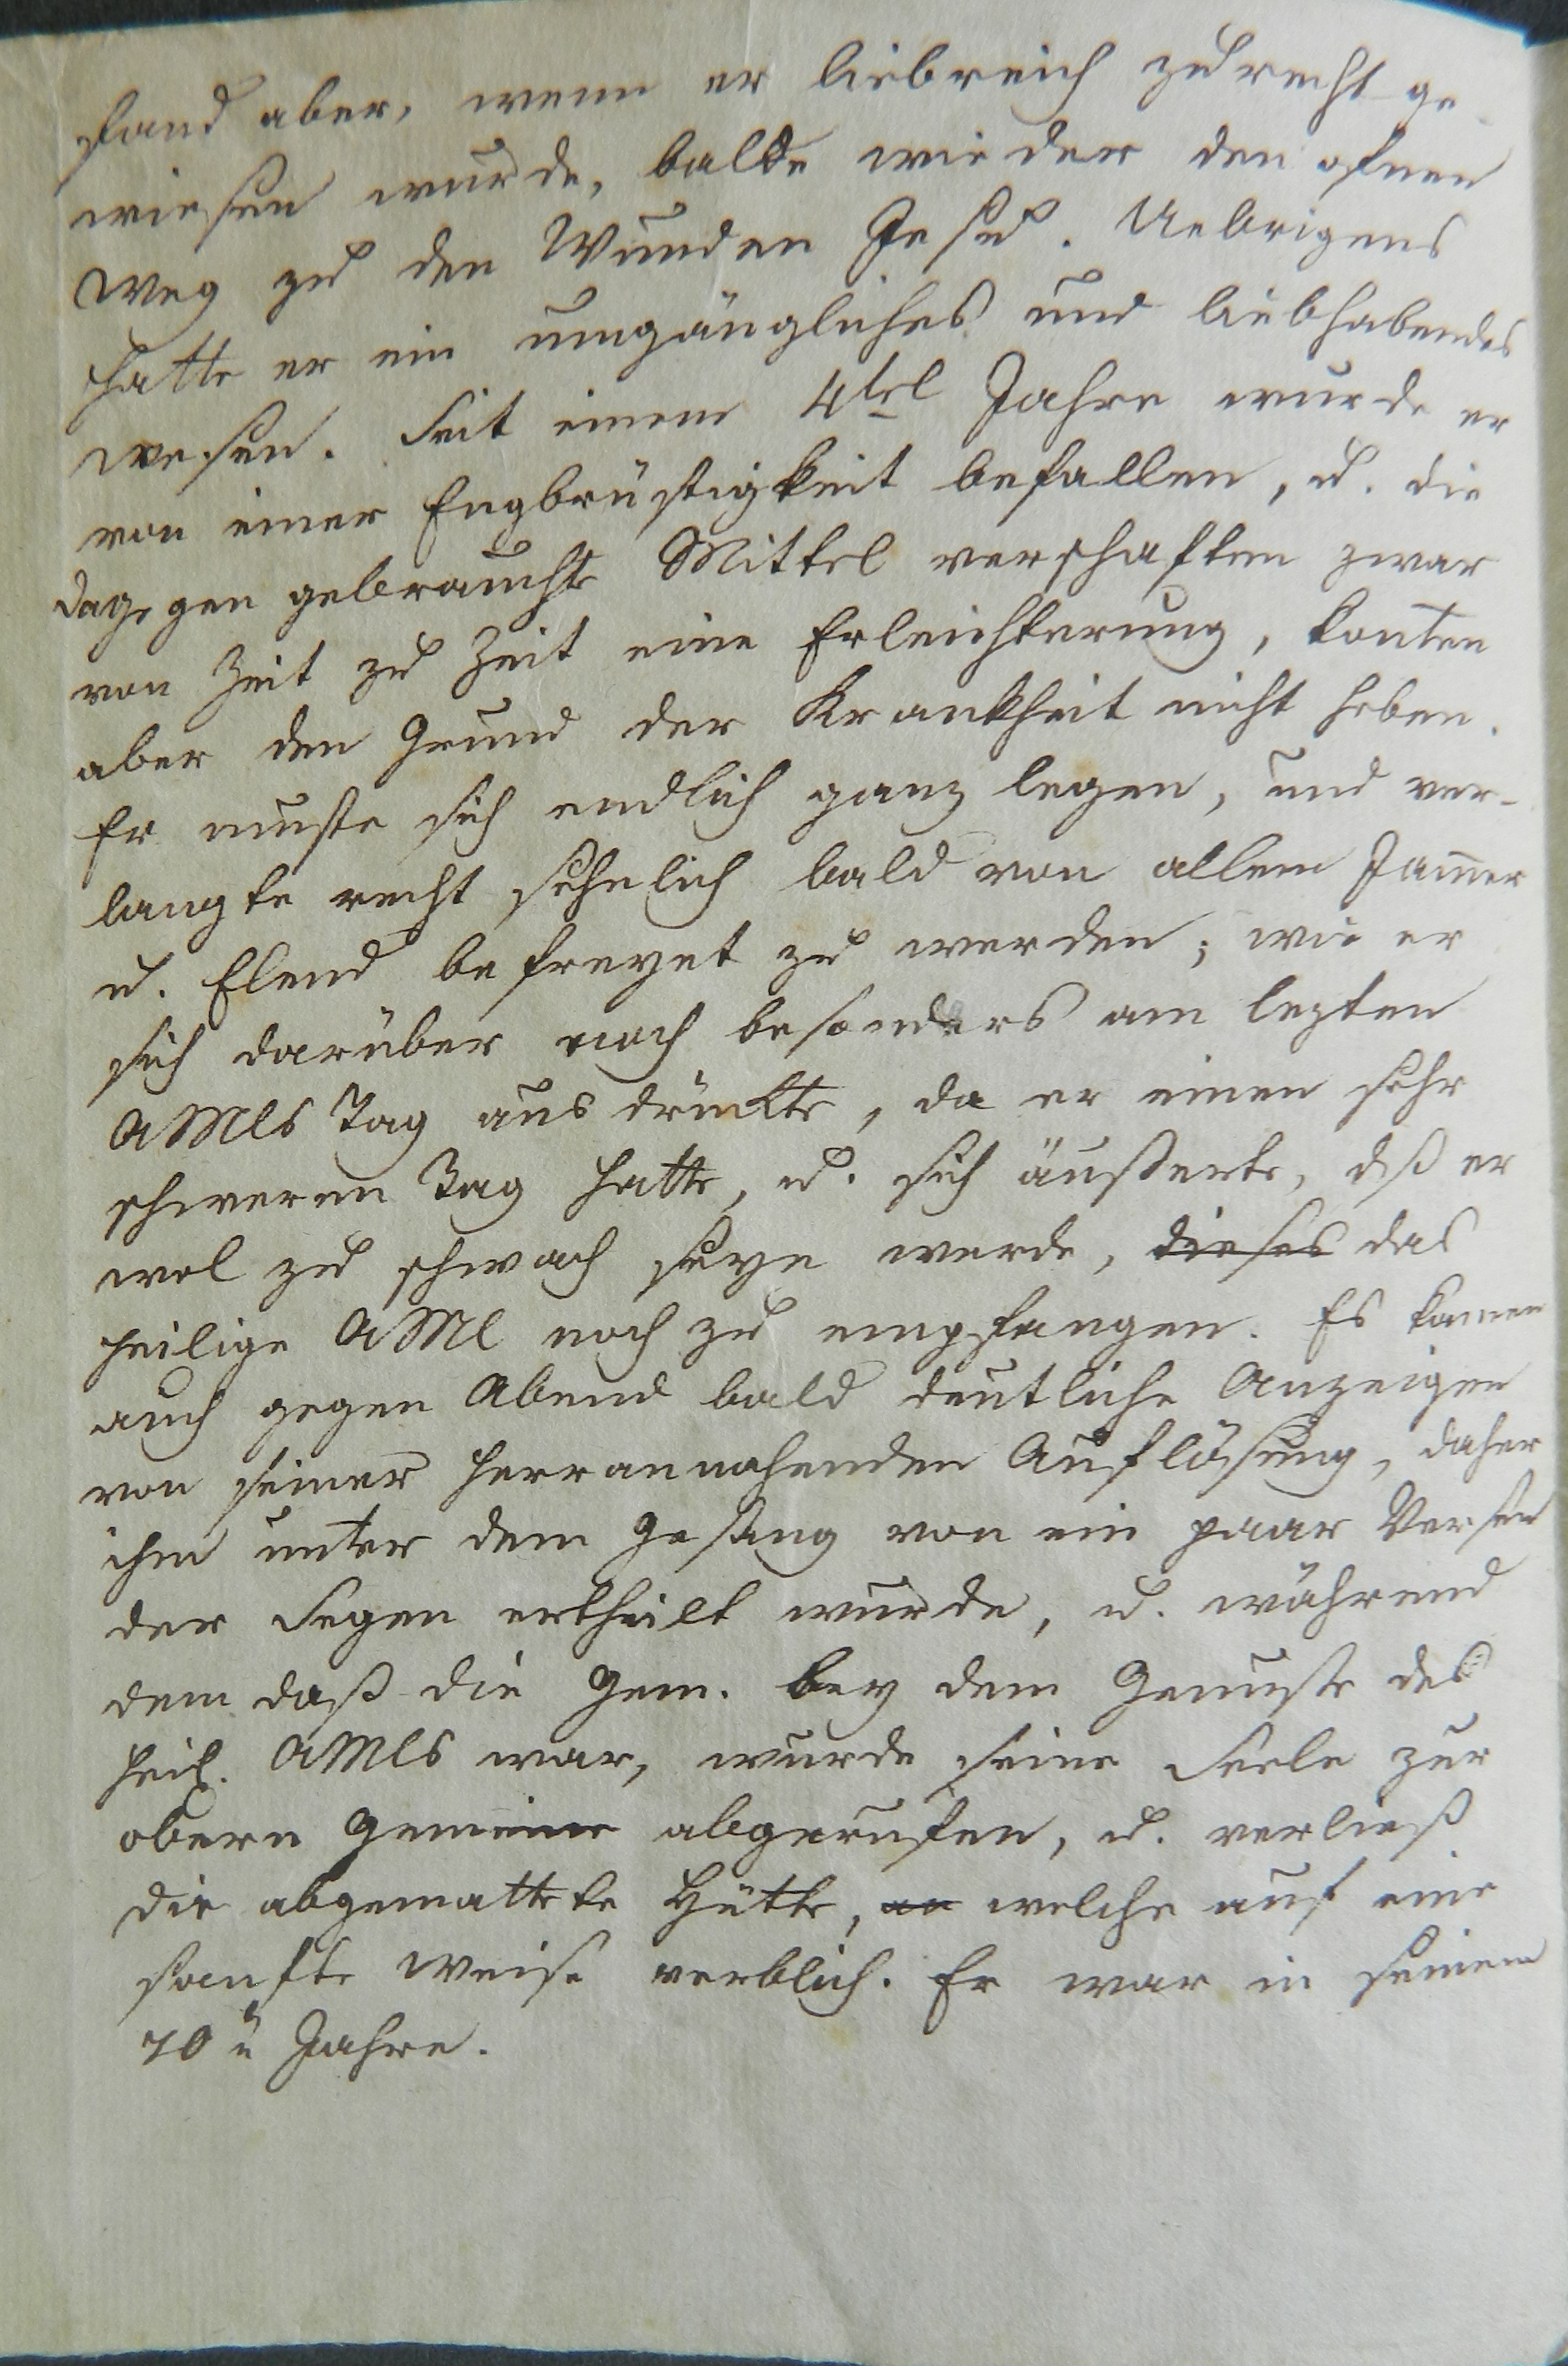 fand aber, wenn er liebreich zurecht ge-
wiesen wurde, balde wieder den ofnen
Weg zu den Wunden Jesu. Uebrigens
hatte er ein umgängliches und liebhabendes
Wesen. Seit einem 4tel Jahre wurde er
von einer Engbrüstigkeit befallen, u. die
dagegen gebrauchte Mittel verschaften zwar
von Zeit zu Zeit eine Erleichterung, konten
aber den Grund der Krankheit nicht heben.
Er muste sich endlich ganz legen, und ver-
langte recht sehnlich bald von allem Jam̄er
u. Elend befreyet zu werden; wie er
sich darüber noch besonders am lezten
AMls Tag ausdrückte, da er einen sehr
schweren Tag hatte, u. sich äußerte, dß er
wol zu schwach seyn werde, dieses das
heilige AMl noch zu empfangen. Es kamen
auch gegen Abend bald deutliche Anzeigen
von seiner herrannahenden Auflösung, daher
ihm unter dem Gesang von ein paar Versen
der Segen ertheilt wurde, u. während
dem daß die Gem. bey dem Genusse des
heil. AMls war, wurde seine Seele zur
obern Gemeine abgerufen, u. verließ
die abgemattete Hütte, welche auf eine
sanfte Weise verblich. Er war in seinem
70n Jahre.